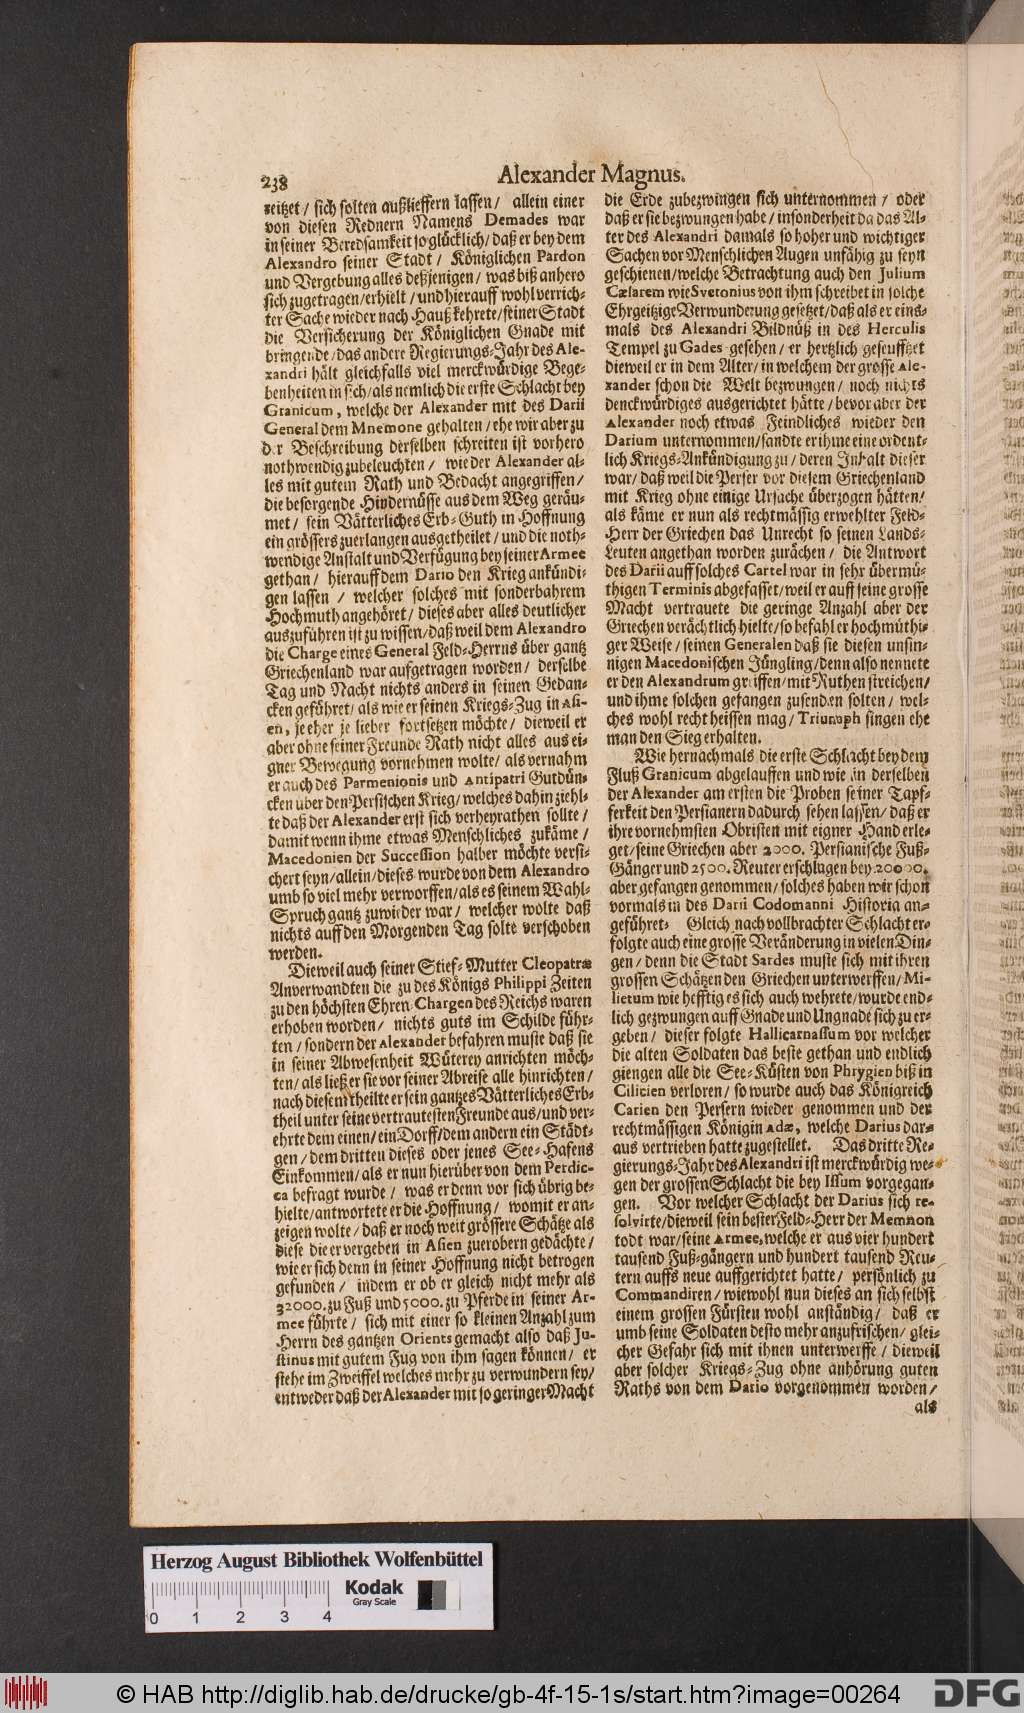 238
Alexander Magnus.
reitzet / sich solten außlieffern lassen / allein einer
von diesen Rednern Namens Demades war
in seiner Beredsamkeit so glücklich / daß er bey dem
Alexandro seiner Stadt / Königlichen Pardon
und Vergebung alles deßjenigen / was biß anhero
sich zugetragen / erhielt / und hierauff wohl verrich-
ter Sache wieder nach Hauß kehrete / seiner Stadt
die Versicherung der Königlichen Gnade mit
bringende / das andere Regierungs-Jahr des Ale-
xandri hält gleichfalls viel merckwürdige Bege-
benheiten in sich / als nemlich die erste Schlacht bey
Granicum, welche der Alexander mit des Darii
General dem Mnemone gehalten / ehe wir aber zu
der Beschreibung derselben schreiten ist vorhero
nothwendig zubeleuchten / wie der Alexander al-
les mit gutem Rath und Bedacht angegriffen /
die besorgende Hindernüsse aus dem Weg geräu-
met / sein Vätterliches Erb-Guth in Hoffnung
ein grössers zuerlangen ausgetheilet / und die noth-
wendige Anstalt und Verfügung bey seiner Armee
gethan / hierauff dem Dario den Krieg ankündi-
gen lassen / welcher solches mit sonderbahrem
Hochmuth angehöret / dieses aber alles deutlicher
auszuführen ist zu wissen / daß weil dem Alexandro
die Charge eines General Feld-Herrns über gantz
Griechenland war aufgetragen worden / derselbe
Tag und Nacht nichts anders in seinen Gedan-
cken geführet / als wie er seinen Kriegs-Zug in Asi-
en, je eher je lieber fortsetzen möchte / dieweil er
aber ohne seiner Freunde Rath nicht alles aus ei-
gner Bewegung vornehmen wolte / als vernahm
er auch des Parmenionis und Antipatri Gutdün-
cken über den Persischen Krieg / welches dahin ziehl-
te daß der Alexander erst sich verheyrathen solte /
damit wenn ihme etwas Menschliches zukäme /
Macedonien der Succession halber möchte versi-
chert seyn / allein / dieses wurde von dem Alexandro
umb so viel mehr verworffen / als es seinem Wahl-
Spruch gantz zuwieder war / welcher wolte daß
nichts auff den Morgenden Tag solte verschoben
werden.
Dieweil auch seiner Stief-Mutter Cleopatræ
Anverwandten die zu des Königs Philippi Zeiten
zu den höchsten Ehren Chargen des Reichs waren
erhoben worden / nichts guts im Schilde führ-
ten / sondern der Alexander befahren muste daß sie
in seiner Abwesenheit Wüterey anrichten möch-
ten / als ließ er sie vor seiner Abreise alle hinrichten /
nach diesen theilte er sein gantzes Vätterliches Erb-
theil unter seine vertrautesten Freunde aus / und ver-
ehrte dem einen / ein Dorff / dem andern ein Städt-
gen / dem dritten dieses oder jenes See-Hafens
Einkommen / als er nun hierüber von dem Perdic-
ca befragt wurde / was er denn vor sich übrig be-
hielte / antwortete er die Hoffnung / womit er an-
zeigen wolte / daß er noch weit grössere Schätze als
diese die er vergeben in Asien zuerobern gedächte /
wie er sich denn in seiner Hoffnung nicht betrogen
gefunden / indem er ob er gleich nicht mehr als
32000. zu Fuß und 5000. zu Pferde in seiner Ar-
mee führte / sich mit einer so kleinen Anzahl zum
Herrn des gantzen Orients gemacht also daß Ju-
stinus mit gutem Fug von ihm sagen können / er
stehe im Zweiffel welches mehr zu verwundern sey /
entweder daß der Alexander mit so geringer Macht
die Erde zubezwingen sich unternommen / oder
daß er sie bezwungen habe / insonderheit da das Al-
ter des Alexandri damals so hoher und wichtiger
Sachen vor Menschlichen Augen unfähig zu seyn
geschienen / welche Betrachtung auch den Julium
Cæsarem wie Svetonius von ihm schreibet in solche
Ehrgeitzige Verwunderung gesetzet / daß als er eins-
mals des Alexandri Bildnüß in des Herculis
Tempel zu Gades gesehen / er hertzlich geseufftzet
dieweil er in dem Alter / in welchem der grosse Ale-
xander schon die Welt bezwungen / noch nichts
denckwürdiges ausgerichtet hätte / bevor aber der
Alexander noch etwas Feindliches wieder den
Darium unternommen / sandte er ihme eine ordent-
lich Kriegs-Ankündigung zu / deren Inhalt dieser
war / daß weil die Perser vor diesem Griechenland
mit Krieg ohne einige Ursache überzogen hätten /
als käme er nun als rechtmässig erwehlter Feld-
Herr der Griechen das Unrecht so seinen Lands-
Leuten angethan worden zurächen / die Antwort
des Darii auff solches Cartel war in sehr übermü-
thigen Terminis abgefasset / weil er auff seine grosse
Macht vertrauete die geringe Anzahl aber der
Griechen verächtlich hielte / so befahl er hochmüthi-
ger Weise / seinen Generalen daß sie diesen unsin-
nigen Macedonischen Jüngling / denn also nennete
er den Alexandrum greiffen / mit Ruthen streichen /
und ihme solchen gefangen zusenden solten / wel-
ches wohl recht heissen mag / Triumph singen ehe
man den Sieg erhalten.
Wie hernachmals die erste Schlacht bey dem
Fluß Granicum abgelauffen und wie in derselben
der Alexander am ersten die Proben seiner Tapf-
ferkeit den Persianern dadurch sehen lassen / daß er
ihre vornehmsten Obristen mit eigner Hand erle-
get / seine Griechen aber 2000. Persianische Fuß-
Gänger und 2500. Reuter erschlagen bey 20000.
aber gefangen genommen / solches haben wir schon
vormals in des Darii Codomanni Historia an-
geführet. Gleich nach vollbrachter Schlacht er-
folgte auch eine grosse Veränderung in vielen Din-
gen / denn die Stadt Sardes muste sich mit ihren
grossen Schätzen den Griechen unterwerffen / Mi-
lietum wie hefftig es sich auch wehrete / wurde end-
lich gezwungen auff Gnade und Ungnade sich zu er-
geben / dieser folgte Hallicarnassum vor welcher
die alten Soldaten das beste gethan und endlich
giengen alle die See-Küsten von Phrygien biß in
Cilicien verloren / so wurde auch das Königreich
Carien den Persern wieder genommen und der
rechtmässigen Königin Adæ, welche Darius dar-
aus vertrieben hatte zugestellet. Das dritte Re-
gierungs-Jahr des Alexandri ist merckwürdig we-
gen der grossen Schlacht die bey Issum vorgegan-
gen. Vor welcher Schlacht der Darius sich re-
solvirte / dieweil sein bester Feld-Herr der Memnon
todt war / seine Armee, welche er aus vier hundert
tausend Fuß-gängern und hundert tausend Reu-
tern auffs neue auffgerichtet hatte / persönlich zu
Commandiren / wiewohl nun dieses an sich selbst
einem grossen Fürsten wohl anständig / daß er
umb seine Soldaten desto mehr anzufrischen / glei-
cher Gefahr sich mit ihnen unterwerffe / dieweil
aber solcher Kriegs-Zug ohne anhörung guten
Raths von dem Dario vorgenommen worden /
als
Herzog August Bibliothek Wolfenbüttel
Kodak
Gray Scale
0 1 2 3 4
© HAB http://diglib.hab.de/drucke/gb-4f-15-1s/start.htm?image=00264
DFG